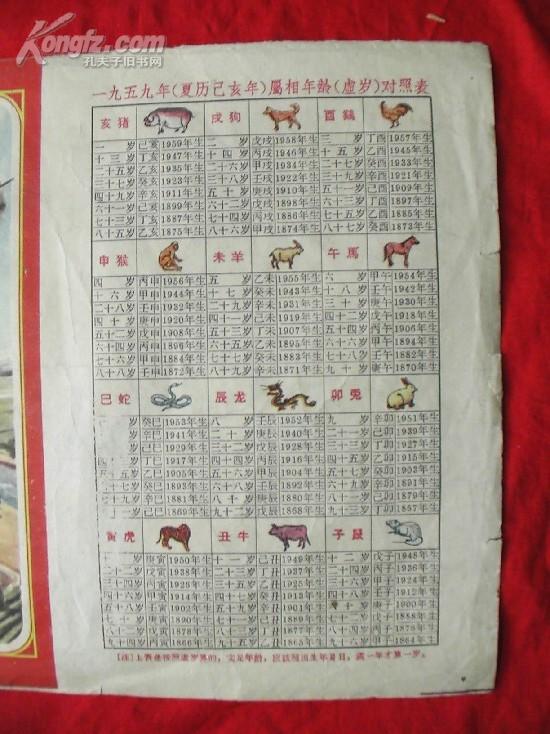 Kongfz.com
孔夫子旧书网
一九五九年(夏历己亥年)屬相年龄(虚岁)对照表
亥猪 戌狗 酉鷄
一岁 己亥1959年生 二岁 戊戌1958年生 三岁 丁酉1957年生
十三岁 丁亥1947年生 十四岁 丙戌1946年生 十五岁 乙酉1945年生
二十五岁 乙亥1935年生 二十六岁 甲戌1934年生 二十七岁 癸酉1933年生
三十七岁 癸亥1923年生 三十八岁 壬戌1922年生 三十九岁 辛酉1921年生
四十九岁 辛亥1911年生 五十岁 庚戌1910年生 五十一岁 己酉1909年生
六十一岁 己亥1899年生 六十二岁 戊戌1898年生 六十三岁 丁酉1897年生
七十三岁 丁亥1887年生 七十四岁 丙戌1886年生 七十五岁 乙酉1885年生
八十五岁 乙亥1875年生 八十六岁 甲戌1874年生 八十七岁 癸酉1873年生
申猴 未羊 午馬
四岁 丙申1956年生 五岁 乙未1955年生 六岁 甲午1954年生
十六岁 甲申1944年生 十七岁 癸未1943年生 十八岁 壬午1942年生
二十八岁 壬申1932年生 二十九岁 辛未1931年生 三十岁 庚午1930年生
四十岁 庚申1920年生 四十一岁 己未1919年生 四十二岁 戊午1918年生
五十二岁 戊申1908年生 五十三岁 丁未1907年生 五十四岁 丙午1906年生
六十四岁 丙申1896年生 六十五岁 乙未1895年生 六十六岁 甲午1894年生
七十六岁 甲申1884年生 七十七岁 癸未1883年生 七十八岁 壬午1882年生
八十八岁 壬申1872年生 八十九岁 辛未1871年生 九十岁 庚午1870年生
巳蛇 辰龙 卯兎
岁 癸巳1953年生 八岁 壬辰1952年生 九岁 辛卯1951年生
岁 辛巳1941年生 二十岁 庚辰1940年生 二十一岁 己卯1939年生
岁 己巳1929年生 三十二岁 戊辰1928年生 三十三岁 丁卯1927年生
岁 丁巳1917年生 四十四岁 丙辰1916年生 四十五岁 乙卯1915年生
十五岁 乙巳1905年生 五十六岁 甲辰1904年生 五十七岁 癸卯1903年生
十七岁 癸巳1893年生 六十八岁 壬辰1892年生 六十九岁 辛卯1891年生
十九岁 辛巳1881年生 八十岁 庚辰1880年生 八十一岁 己卯1879年生
岁 己巳1869年生 九十二岁 戊辰1868年生 九十三岁 丁卯1857年生
寅虎 丑牛 子鼠
十岁 庚寅1950年生 十一岁 己丑1949年生 十二岁 戊子1948年生
二十二岁 戊寅1938年生 二十三岁 丁丑1937年生 二十四岁 丙子1936年生
三十四岁 丙寅1926年生 三十五岁 乙丑1925年生 三十六岁 甲子1924年生
四十六岁 甲寅1914年生 四十七岁 癸丑1913年生 四十八岁 壬子1912年生
五十八岁 壬寅1902年生 五十九岁 辛丑1901年生 十岁 庚子1900年生
七十岁 庚寅1890年生 七十一岁 己丑1889年生 七十二岁 戊子1888年生
八十二岁 戊寅1878年生 八十三岁 丁丑1877年生 八十四岁 丙子1876年生
九十四岁 丙寅1866年生 九十五岁 乙丑1865年生 九十六岁 甲子1864年生
[注]上表是按照虚岁算的，实足年龄，应该照出生年月日，满一年才算一岁。